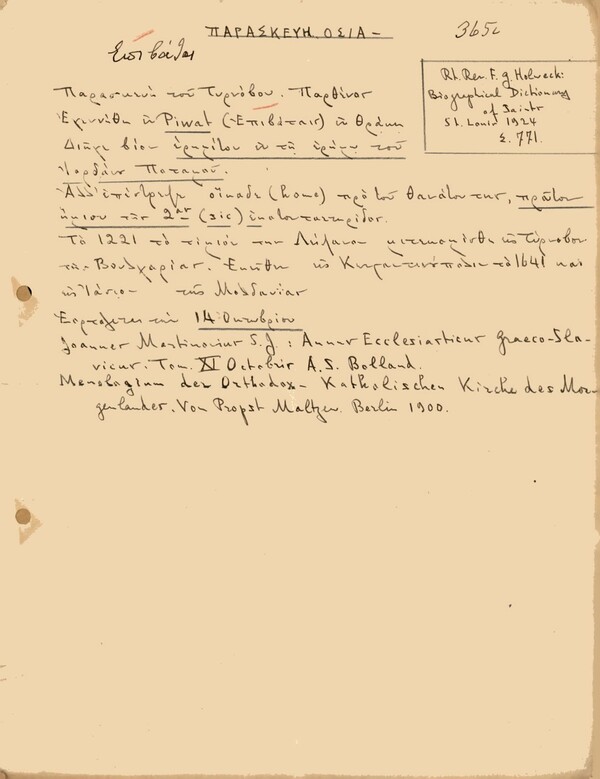 ΠΑΡΑΣΚΕΥΗ ΟΣΙΑ -
365c
Επιβάται
Rt. Rev. F. G. Holweck:
Biographical Dictionary
of Saints
St. Louis 1924
Σ. 771.
Παρασκευή τοῦ Τυρνόβου. Παρθένος
Ἐγεννήθη ἐν Piwat (Ἐπιβάταις) ἐν Θράκῃ
Διῆγε βίον ἐρημίτου ἐν τῇ ἐρήμῳ τοῦ
Ἰορδάνου Ποταμοῦ.
Ἀλλ' ἐπέστρεψε οἴκαδε (home) πρὸ τοῦ θανάτου της, πρῶτον
ἥμισυ τῆς 2ας (sic) ἑκατονταετηρίδος.
Τὸ 1221 τὸ τίμιόν της λείψανον μετεκομίσθη εἰς Τύρνοβον
τῆς Βουλγαρίας. εἰς Κωνσταντινούπολιν τὸ 1641 καὶ
εἰς Ἰάσιον τῆς Μολδαυίας
Ἑορτάζεται τὴν 14 Ὀκτωβρίου
Joannes Martinovius S.J: Annus Ecclesiasticus Graeco-Sla-
vicus. Tom. XI Octobris A.S. Bolland.
Menologium der Orthodox-Katholischen Kirche des Mor-
genlandes. Von Propst Maltzew. Berlin 1900.